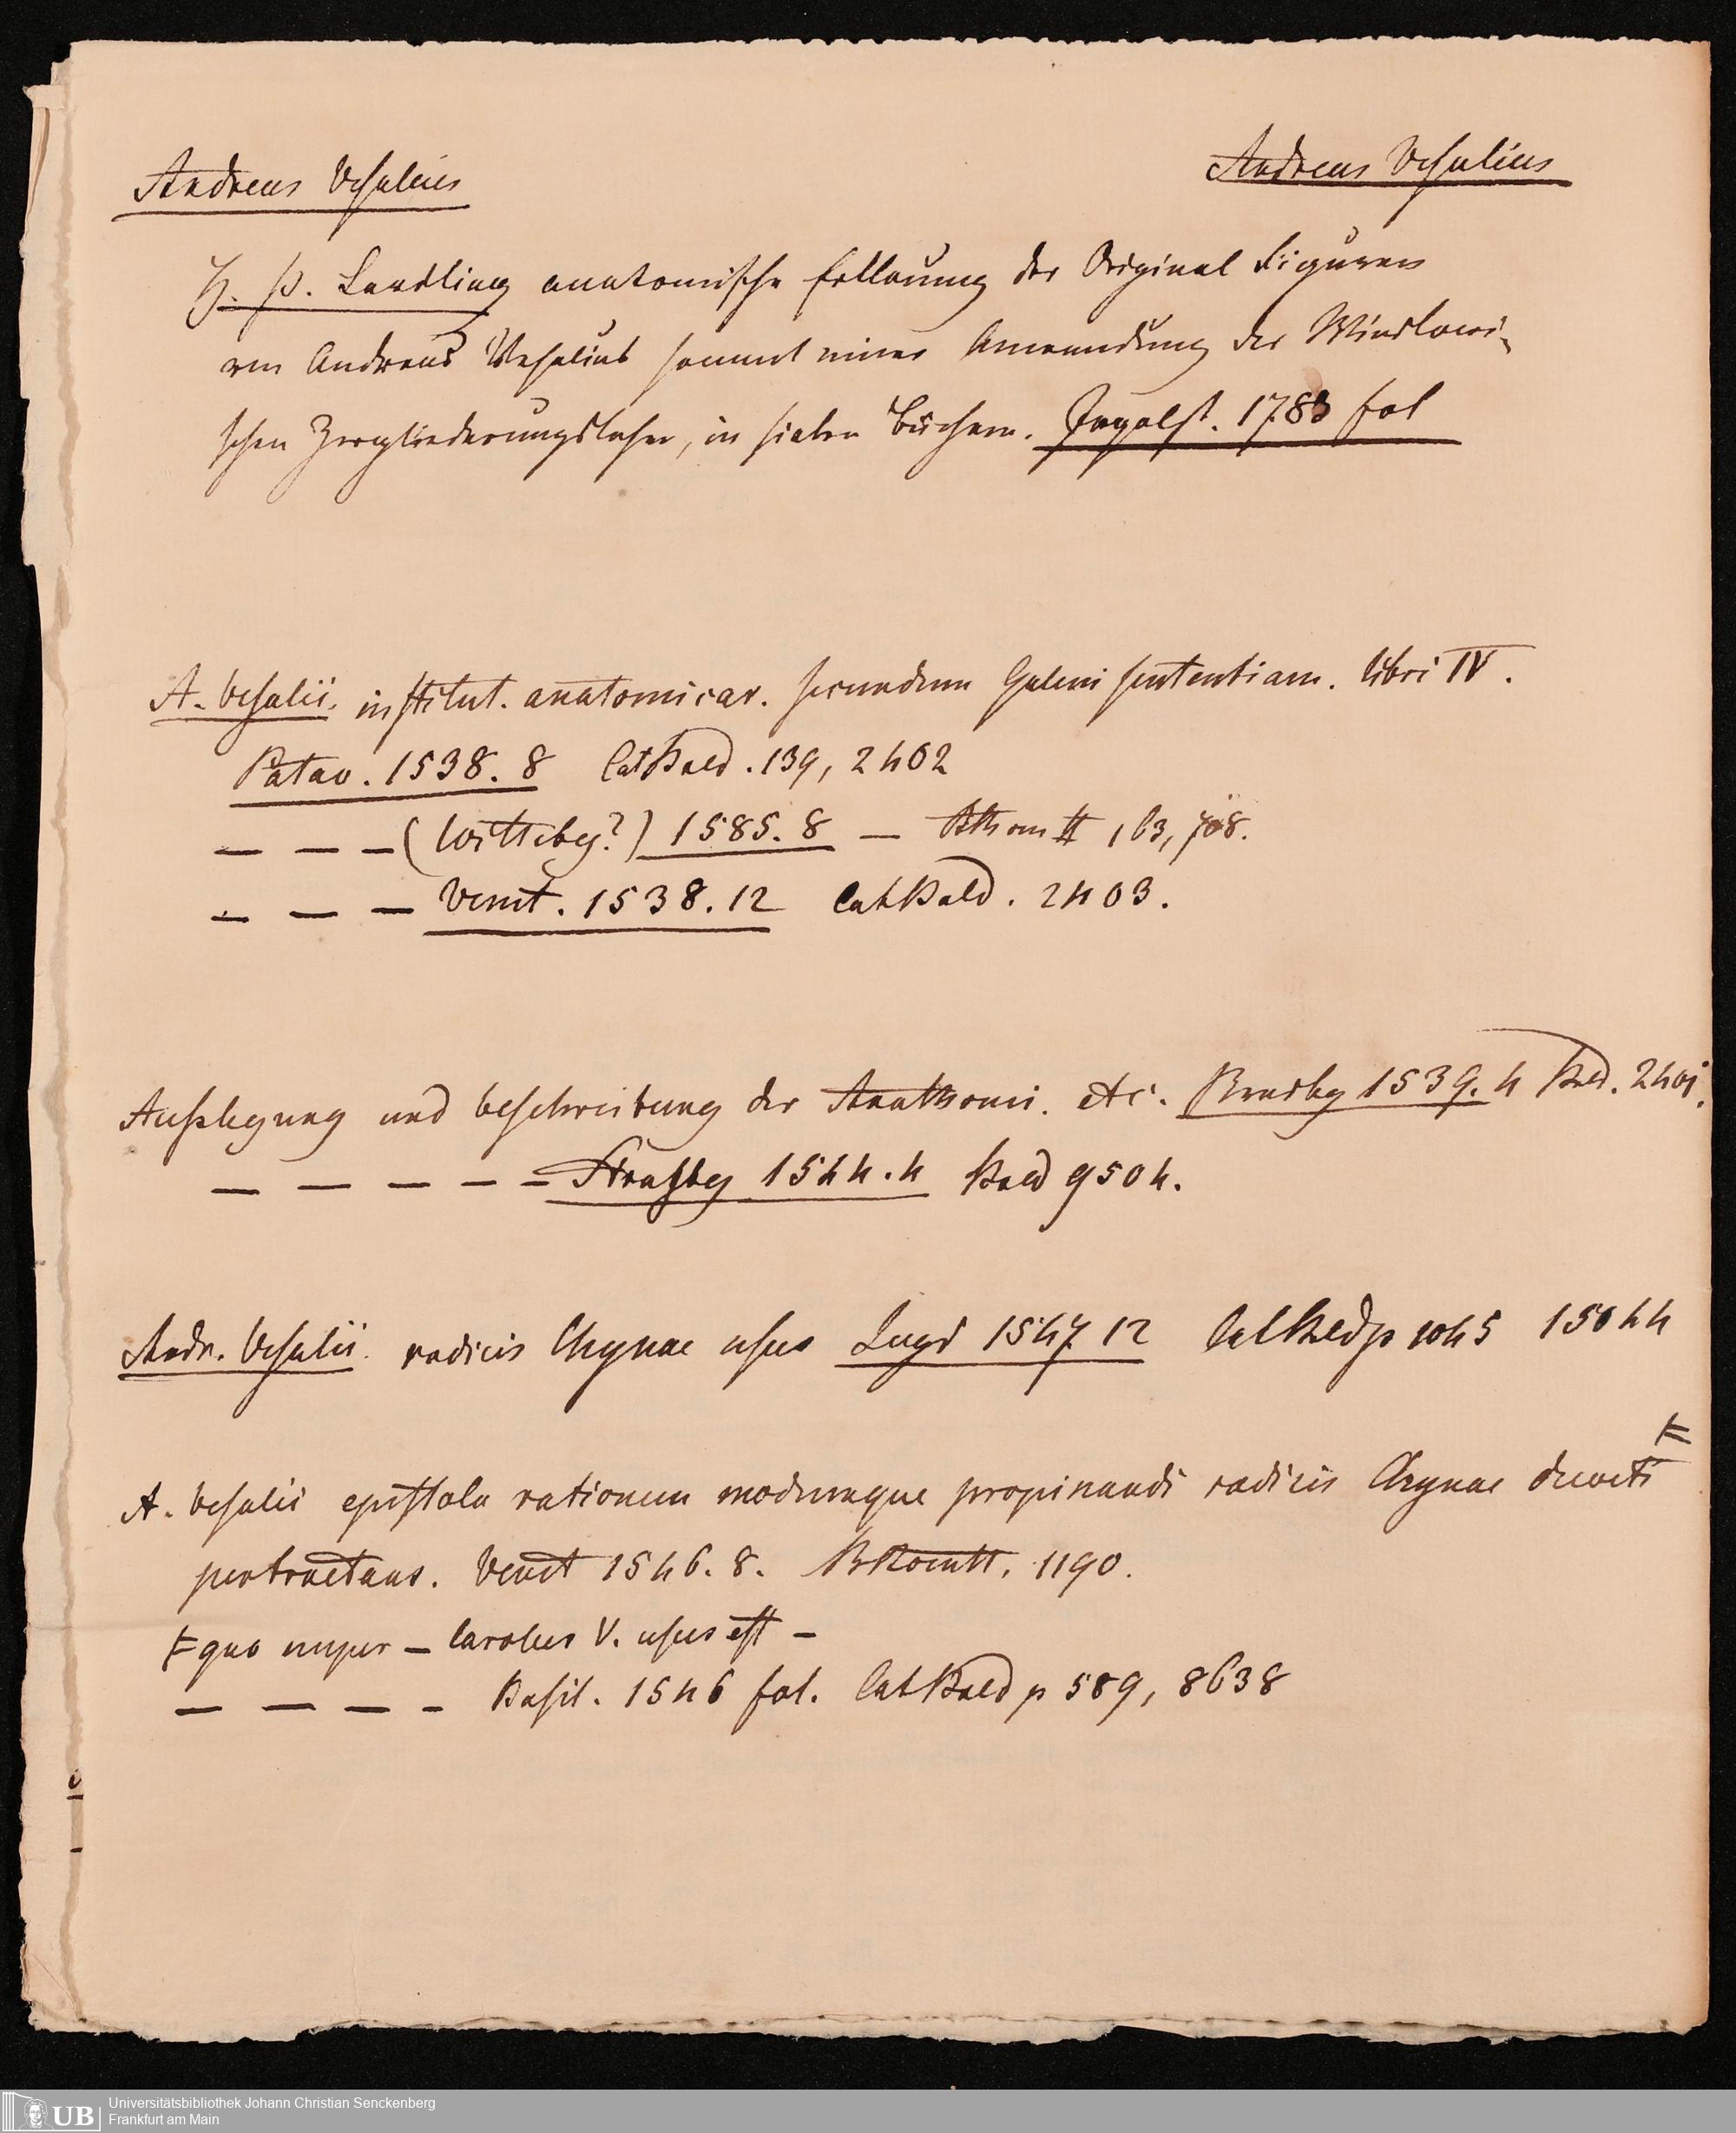 Andreas Vesalius
Andreas Vesalius
H. P. Leveling anatomische Erklärung der Original Figuren
von Andreas Vesalius sammt einer Anwendung der Winslowi-
schen Zergliederungslehre, in sieben Büchern. Ingolst. 1783 fol
A. Vesalii. institut. anatomicar. secundum Galeni sententiam. libri IV.
Patav. 1538. 8 Cat Bald. 139, 2402
— — — (Wittebg?) 1585. 8 — II 163, 708.
— — — Venet. 1538. 12 Cat Bald. 2403.
Ausslegung und beschreibung der Anathomi. etc. 1539. 4 Bald. 2401.
— — — — — Strassbg 1544. 4 Bald 9504.
Andr. Vesalii. radicis Chynae usus Lugd 1547 12 Cat Bald p 1045 15044
A. Vesalii epistola rationem modumque propinandi radicis Chynae decocti
pertractans. Venet 1546. 8. 1190.
quo nuper — Carolus V. usus est —
— — — — Basil. 1546 fol. Cat Bald p 589, 8638
UB
Universitätsbibliothek Johann Christian Senckenberg
Frankfurt am Main